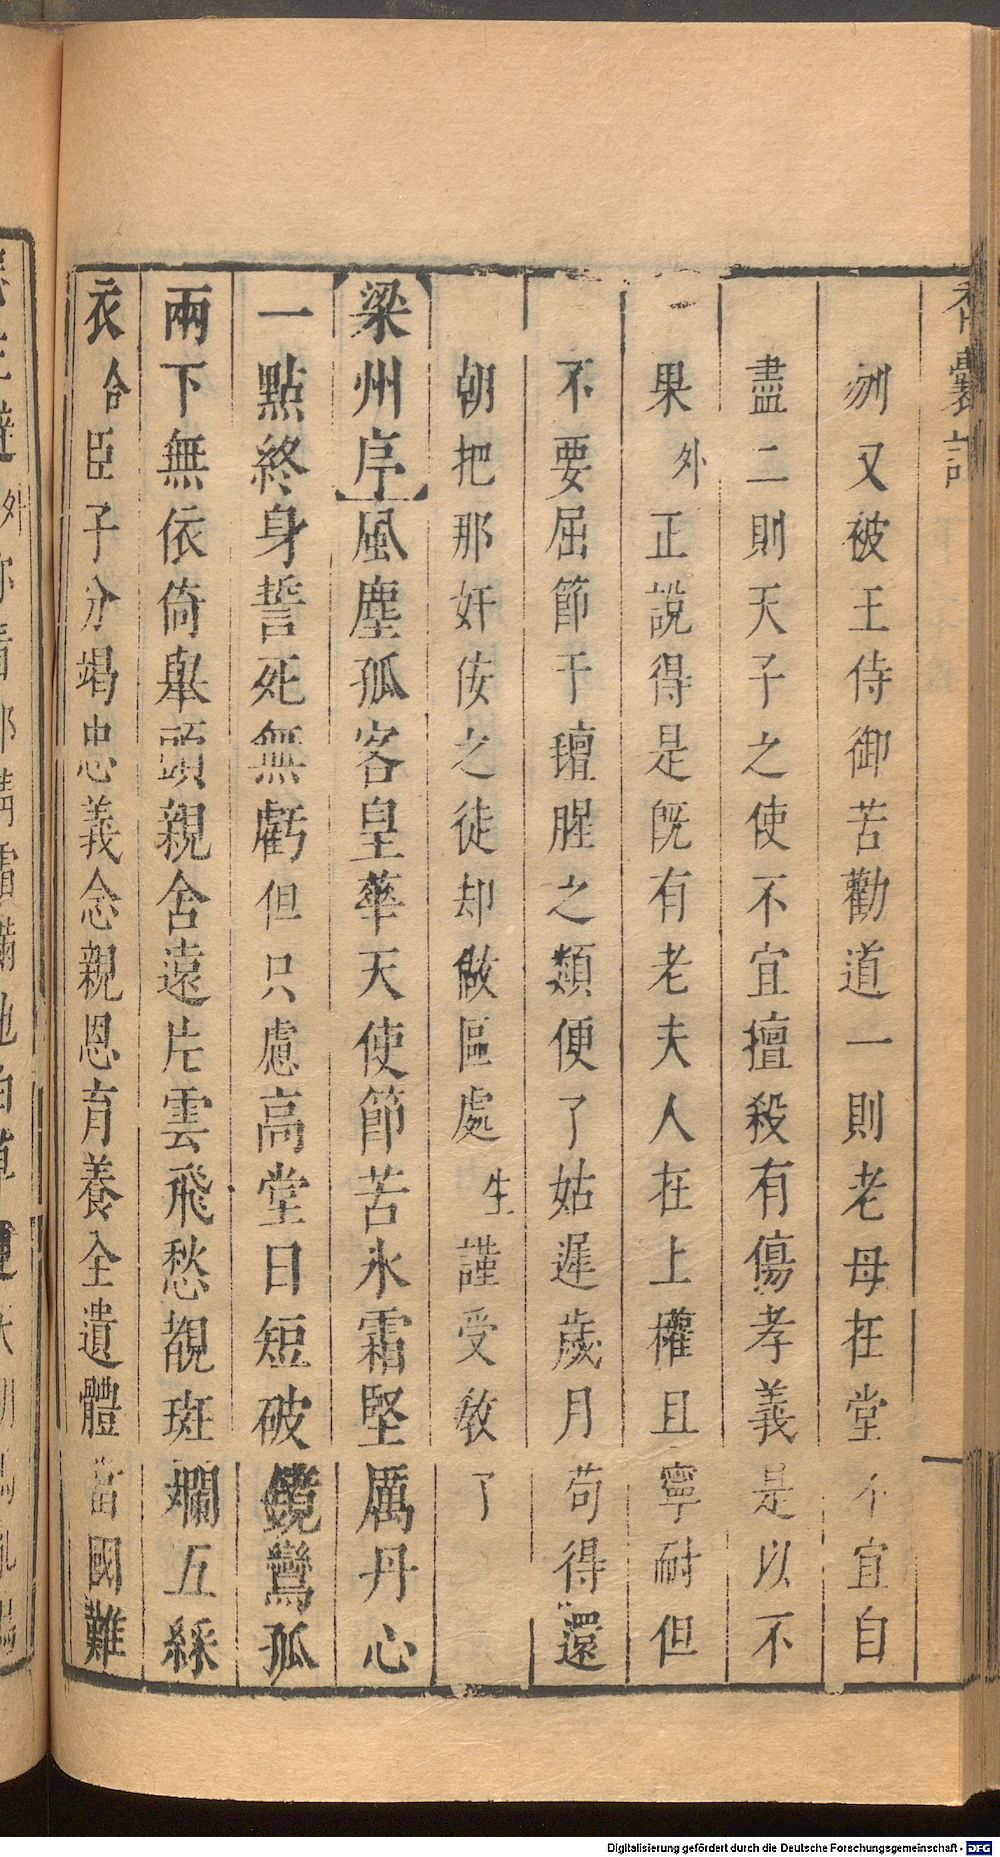 香囊記
刎又被王侍御苦勸道一則老母在堂不宜自
盡二則天子之使不宜擅殺有傷孝義是以不
果外正說得是旣有老夫人在上權且寧耐但
不要屈節于羶腥之類便了姑遲歲月苟得還
朝把那奸佞之徒却做區處生謹受敎了
【梁州序】風塵孤客皇華天使節苦氷霜堅厲丹心
一點終身誓死無虧但只慮高堂日短破鏡鸞孤
兩下無依倚舉頭親舍遠片雲飛愁覩斑斕五綵
衣合臣子分竭忠義念親恩育養全遺體當國難
Digitalisierung gefördert durch die Deutsche Forschungsgemeinschaft - DFG